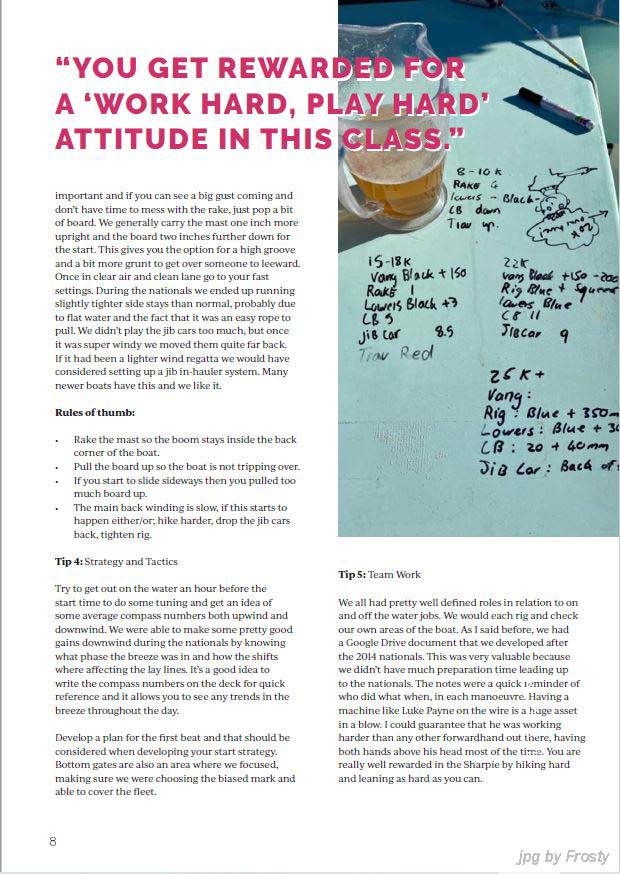 “YOU GET REWARDED FOR
A ‘WORK HARD, PLAY HARD’
ATTITUDE IN THIS CLASS.”
important and if you can see a big gust coming and
don’t have time to mess with the rake, just pop a bit
of board. We generally carry the mast one inch more
upright and the board two inches further down for
the start. This gives you the option for a high groove
and a bit more grunt to get over someone to leeward.
Once in clear air and clean lane go to your fast
settings. During the nationals we ended up running
slightly tighter side stays than normal, probably due
to flat water and the fact that it was an easy rope to
pull. We didn’t play the jib cars too much, but once
it was super windy we moved them quite far back.
If it had been a lighter wind regatta we would have
considered setting up a jib in-hauler system. Many
newer boats have this and we like it.
Rules of thumb:
• Rake the mast so the boom stays inside the back
corner of the boat.
• Pull the board up so the boat is not tripping over.
• If you start to slide sideways then you pulled too
much board up.
• The main back winding is slow, if this starts to
happen either/or; hike harder, drop the jib cars
back, tighten rig.
Tip 4: Strategy and Tactics
Try to get out on the water an hour before the
start time to do some tuning and get an idea of
some average compass numbers both upwind and
downwind. We were able to make some pretty good
gains downwind during the nationals by knowing
what phase the breeze was in and how the shifts
where affecting the lay lines. It’s a good idea to
write the compass numbers on the deck for quick
reference and it allows you to see any trends in the
breeze throughout the day.
Develop a plan for the first beat and that should be
considered when developing your start strategy.
Bottom gates are also an area where we focused,
making sure we were choosing the biased mark and
able to cover the fleet.
8
8-10 K
RAKE 4
lowers - Black-
CB down
Trav up.
15-18K
Vang Black + 150
Rake 1
Lowers Black +3
CB 5
Jib Car 8.5
Trav Red
22K
vang Black +150 -200
Rig Blue +
lowers Blue
CB 11
JIB Car 9
25 K+
Vang:
Rig: Blue + 350m
Lowers: Blue + 30
CB: 20 + 40mm
Jib Car: Back of
Tip 5: Team Work
We all had pretty well defined roles in relation to on
and off the water jobs. We would each rig and check
our own areas of the boat. As I said before, we had
a Google Drive document that we developed after
the 2014 nationals. This was very valuable because
we didn’t have much preparation time leading up
to the nationals. The notes were a quick reminder of
who did what when, in each manoeuvre. Having a
machine like Luke Payne on the wire is a huge asset
in a blow. I could guarantee that he was working
harder than any other forwardhand out there, having
both hands above his head most of the time. You are
really well rewarded in the Sharpie by hiking hard
and leaning as hard as you can.
jpg by Frosty